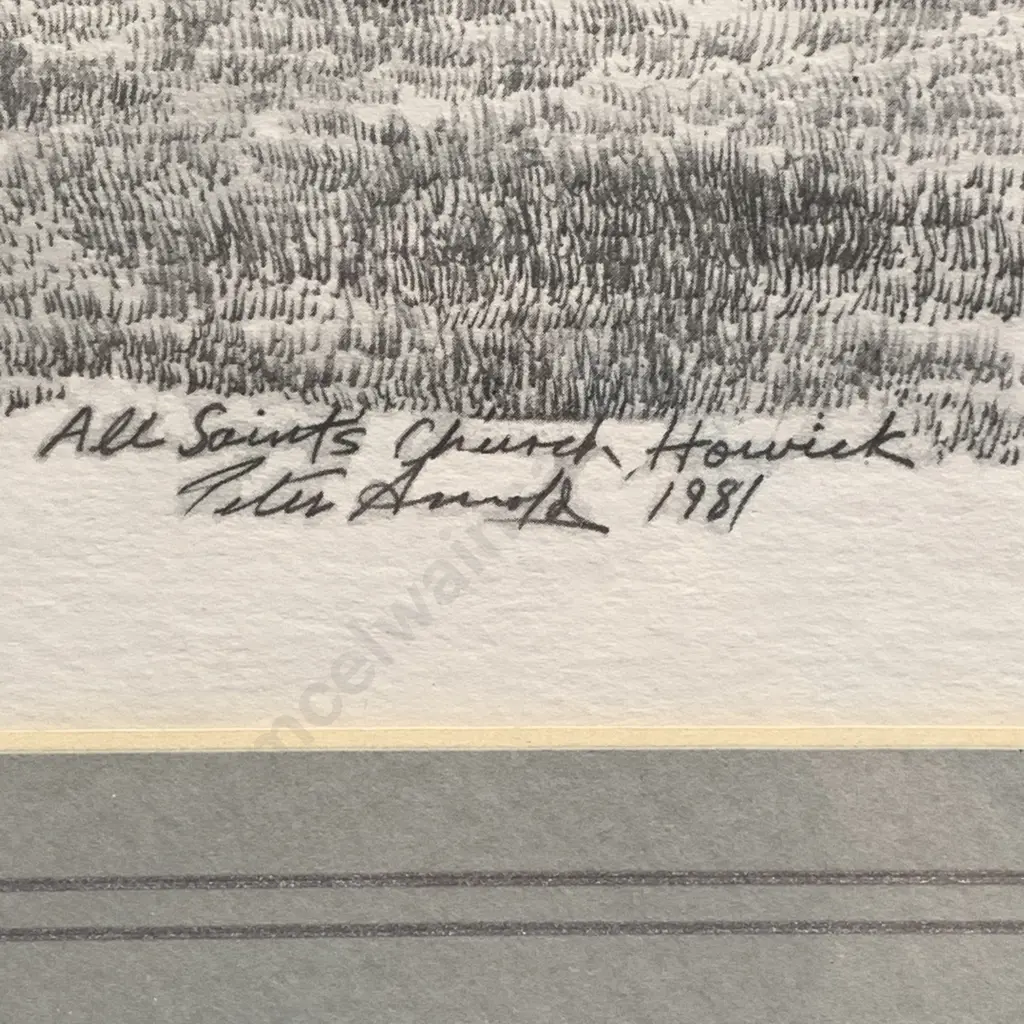 All Saint's Church, Howick
Peter Arnold 1981
mcelwain